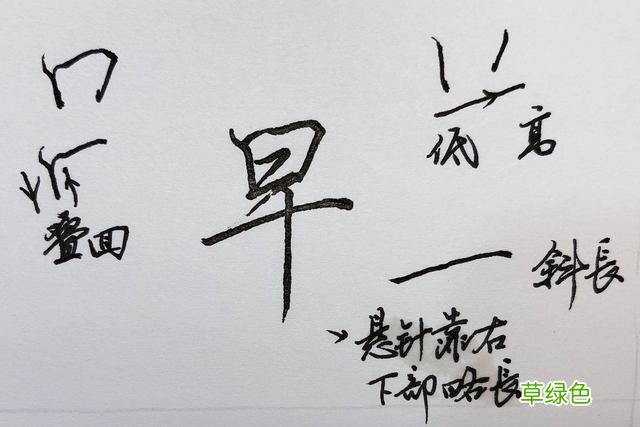 早
叠回
低 高
斜長
悬针靠右
下部略長
草绿色